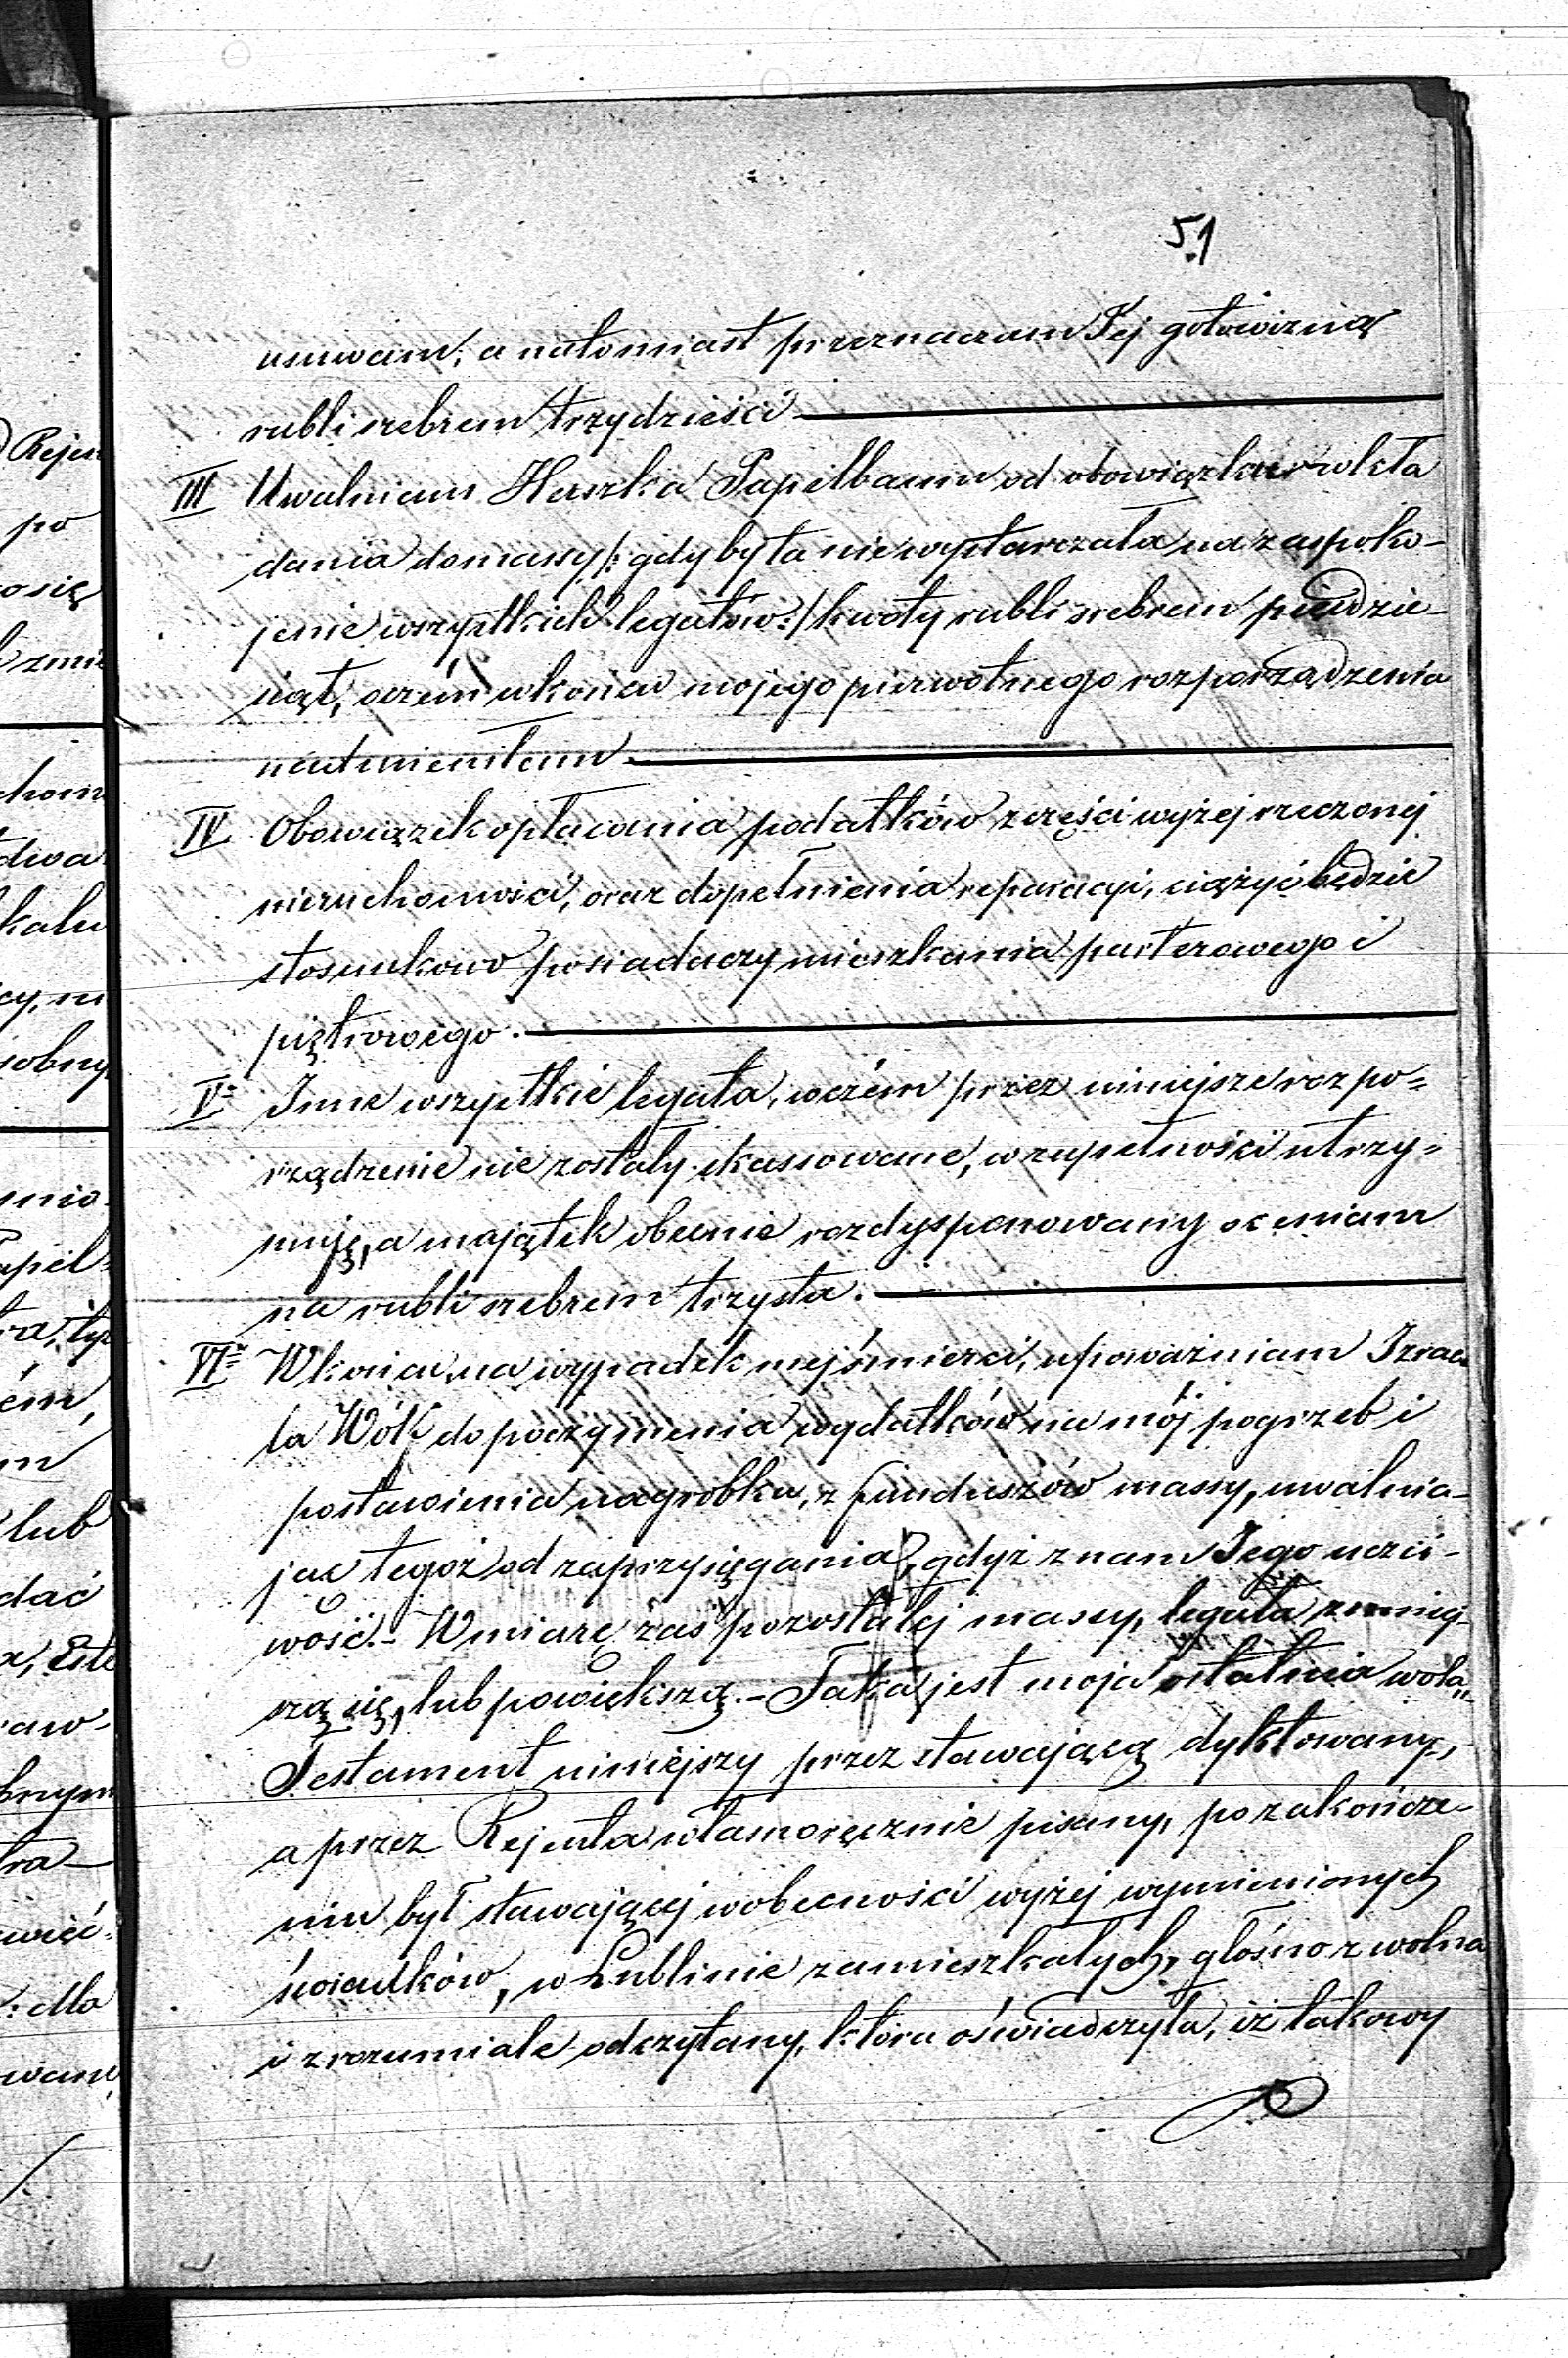 51
usuwam, a natomiast przeznaczam Jej gotowizną
rubli srebrem trzydzieści
III Uwalniam Herszka Papelbaum od obowiązku wkła
dania do massy /: gdyby ta niewystarczała na zaspoko-
jenie wszystkich legatów :/ kwoty rubli srebrem piędzie-
siąt, o czém w końcu mojego pierwotnego rozporządzenia
nadmieniłam
IV Obowiązek opłacania podatków z części wyżej rzeczonej
nieruchomości, oraz dopełnienia reparacyi, ciążyć będzie
stosunkowo posiadaczy mieszkania parterowego i
piętrowego.
V Inne wszystkie legata, w czém przez niniejsze rozpo=
rządzenie nie zostały skassowane, w zupełności utrzy=
muję, a majątek obecnie rozdysponowany oceniam
na rubli srebrem trzysta.
VI W końcu, na wypadek mej śmierci, upoważniam Izrae
la Wólf do poczynienia wydatków na mój pogrzeb i
postawienia nagrobku, z funduszów massy, uwalnia-
jąc tegoż od zaprzysięgania, gdyż znam Jego uczci-
wość. – W miarę zaś pozostałej massy, legata zmniej-
szą się, lub powiększą. – Taka jest moja ostatnia wola„
Testament niniejszy przez stawającą dyktowany,
a przez Rejenta własnoręcznie pisany, po zakończe-
niu był stawającej w obecności wyżej wymienionych
świadków, w Lublinie zamieszkałych, głośno z wolna
i zrozumiale odczytany, która oświadczyła, iż takowy